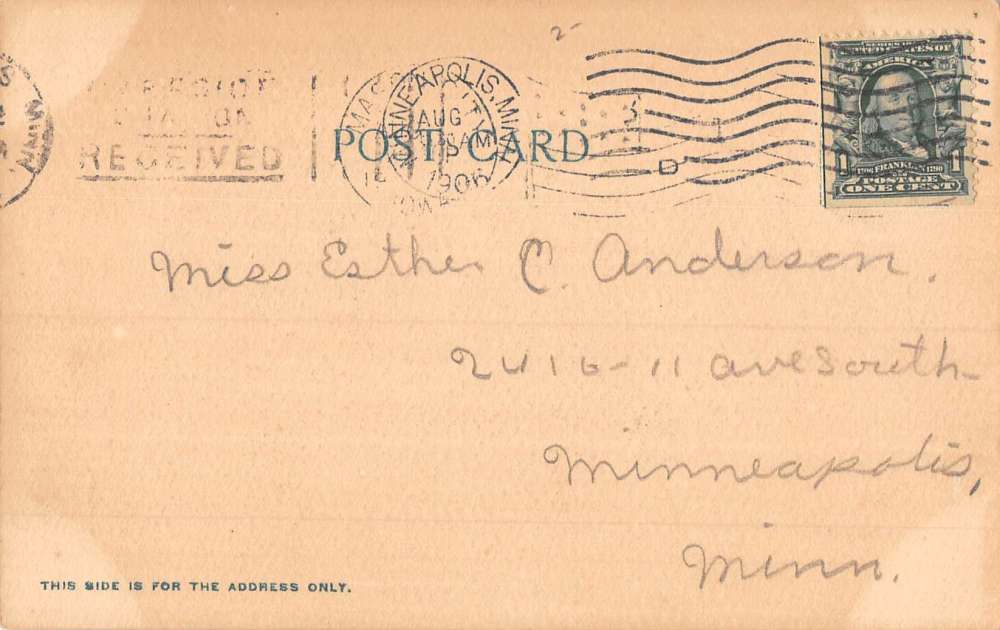 2
MINNEAPOLIS, MINN.
AUG
1906
RECEIVED
POST CARD
D
SERIES 1902
UNITED STATES OF
AMERICA
1 1706 FRANKLIN 1790 1
POSTAGE
ONE CENT
Miss Esther C. Anderson.
2416-11 ave South
Minneapolis,
Minn.
THIS SIDE IS FOR THE ADDRESS ONLY.